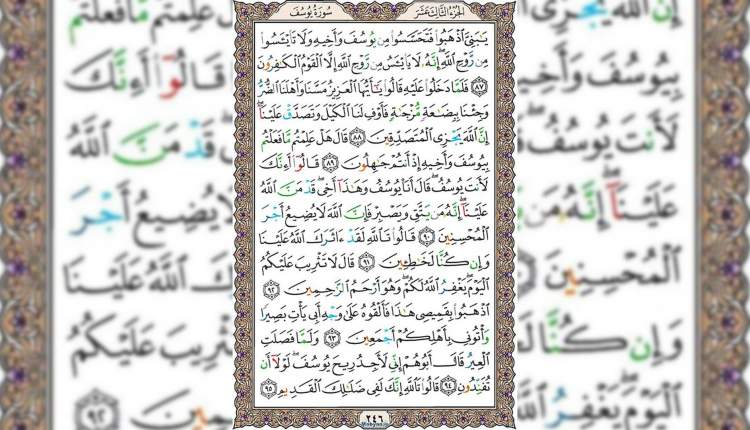 سُورَةُ يُوسُفَ الجُزْءُ الثَّالِثَ عَشَرَ
يَـٰبَنِىَّ ٱذْهَبُوا۟ فَتَحَسَّسُوا۟ مِن يُوسُفَ وَأَخِيهِ وَلَا تَا۟يْـَٔسُوا۟
مِن رَّوْحِ ٱللَّهِ إِنَّهُۥ لَا يَا۟يْـَٔسُ مِن رَّوْحِ ٱللَّهِ إِلَّا ٱلْقَوْمُ ٱلْكَـٰفِرُونَ
٨٧ فَلَمَّا دَخَلُوا۟ عَلَيْهِ قَالُوا۟ يَـٰٓأَيُّهَا ٱلْعَزِيزُ مَسَّنَا وَأَهْلَنَا ٱلضُّرُّ
وَجِئْنَا بِبِضَـٰعَةٍ مُّزْجَىٰةٍ فَأَوْفِ لَنَا ٱلْكَيْلَ وَتَصَدَّقْ عَلَيْنَآ
إِنَّ ٱللَّهَ يَجْزِى ٱلْمُتَصَدِّقِينَ ٨٨ قَالَ هَلْ عَلِمْتُم مَّا فَعَلْتُم
بِيُوسُفَ وَأَخِيهِ إِذْ أَنتُمْ جَـٰهِلُونَ ٨٩ قَالُوٓا۟ أَءِنَّكَ
لَأَنتَ يُوسُفُ قَالَ أَنَا۠ يُوسُفُ وَهَـٰذَآ أَخِى قَدْ مَنَّ ٱللَّهُ
عَلَيْنَآ إِنَّهُۥ مَن يَتَّقِ وَيَصْبِرْ فَإِنَّ ٱللَّهَ لَا يُضِيعُ أَجْرَ
ٱلْمُحْسِنِينَ ٩٠ قَالُوا۟ تَٱللَّهِ لَقَدْ ءَاثَرَكَ ٱللَّهُ عَلَيْنَا
وَإِن كُنَّا لَخَـٰطِـِٔينَ ٩١ قَالَ لَا تَثْرِيبَ عَلَيْكُمُ
ٱلْيَوْمَ يَغْفِرُ ٱللَّهُ لَكُمْ وَهُوَ أَرْحَمُ ٱلرَّٰحِمِينَ ٩٢
ٱذْهَبُوا۟ بِقَمِيصِى هَـٰذَا فَأَلْقُوهُ عَلَىٰ وَجْهِ أَبِى يَأْتِ بَصِيرًا
وَأْتُونِى بِأَهْلِكُمْ أَجْمَعِينَ ٩٣ وَلَمَّا فَصَلَتِ
ٱلْعِيرُ قَالَ أَبُوهُمْ إِنِّى لَأَجِدُ رِيحَ يُوسُفَ لَوْلَآ أَن
تُفَنِّدُونِ ٩٤ قَالُوا۟ تَٱللَّهِ إِنَّكَ لَفِى ضَلَـٰلِكَ ٱلْقَدِيمِ ٩٥
٢٤٦